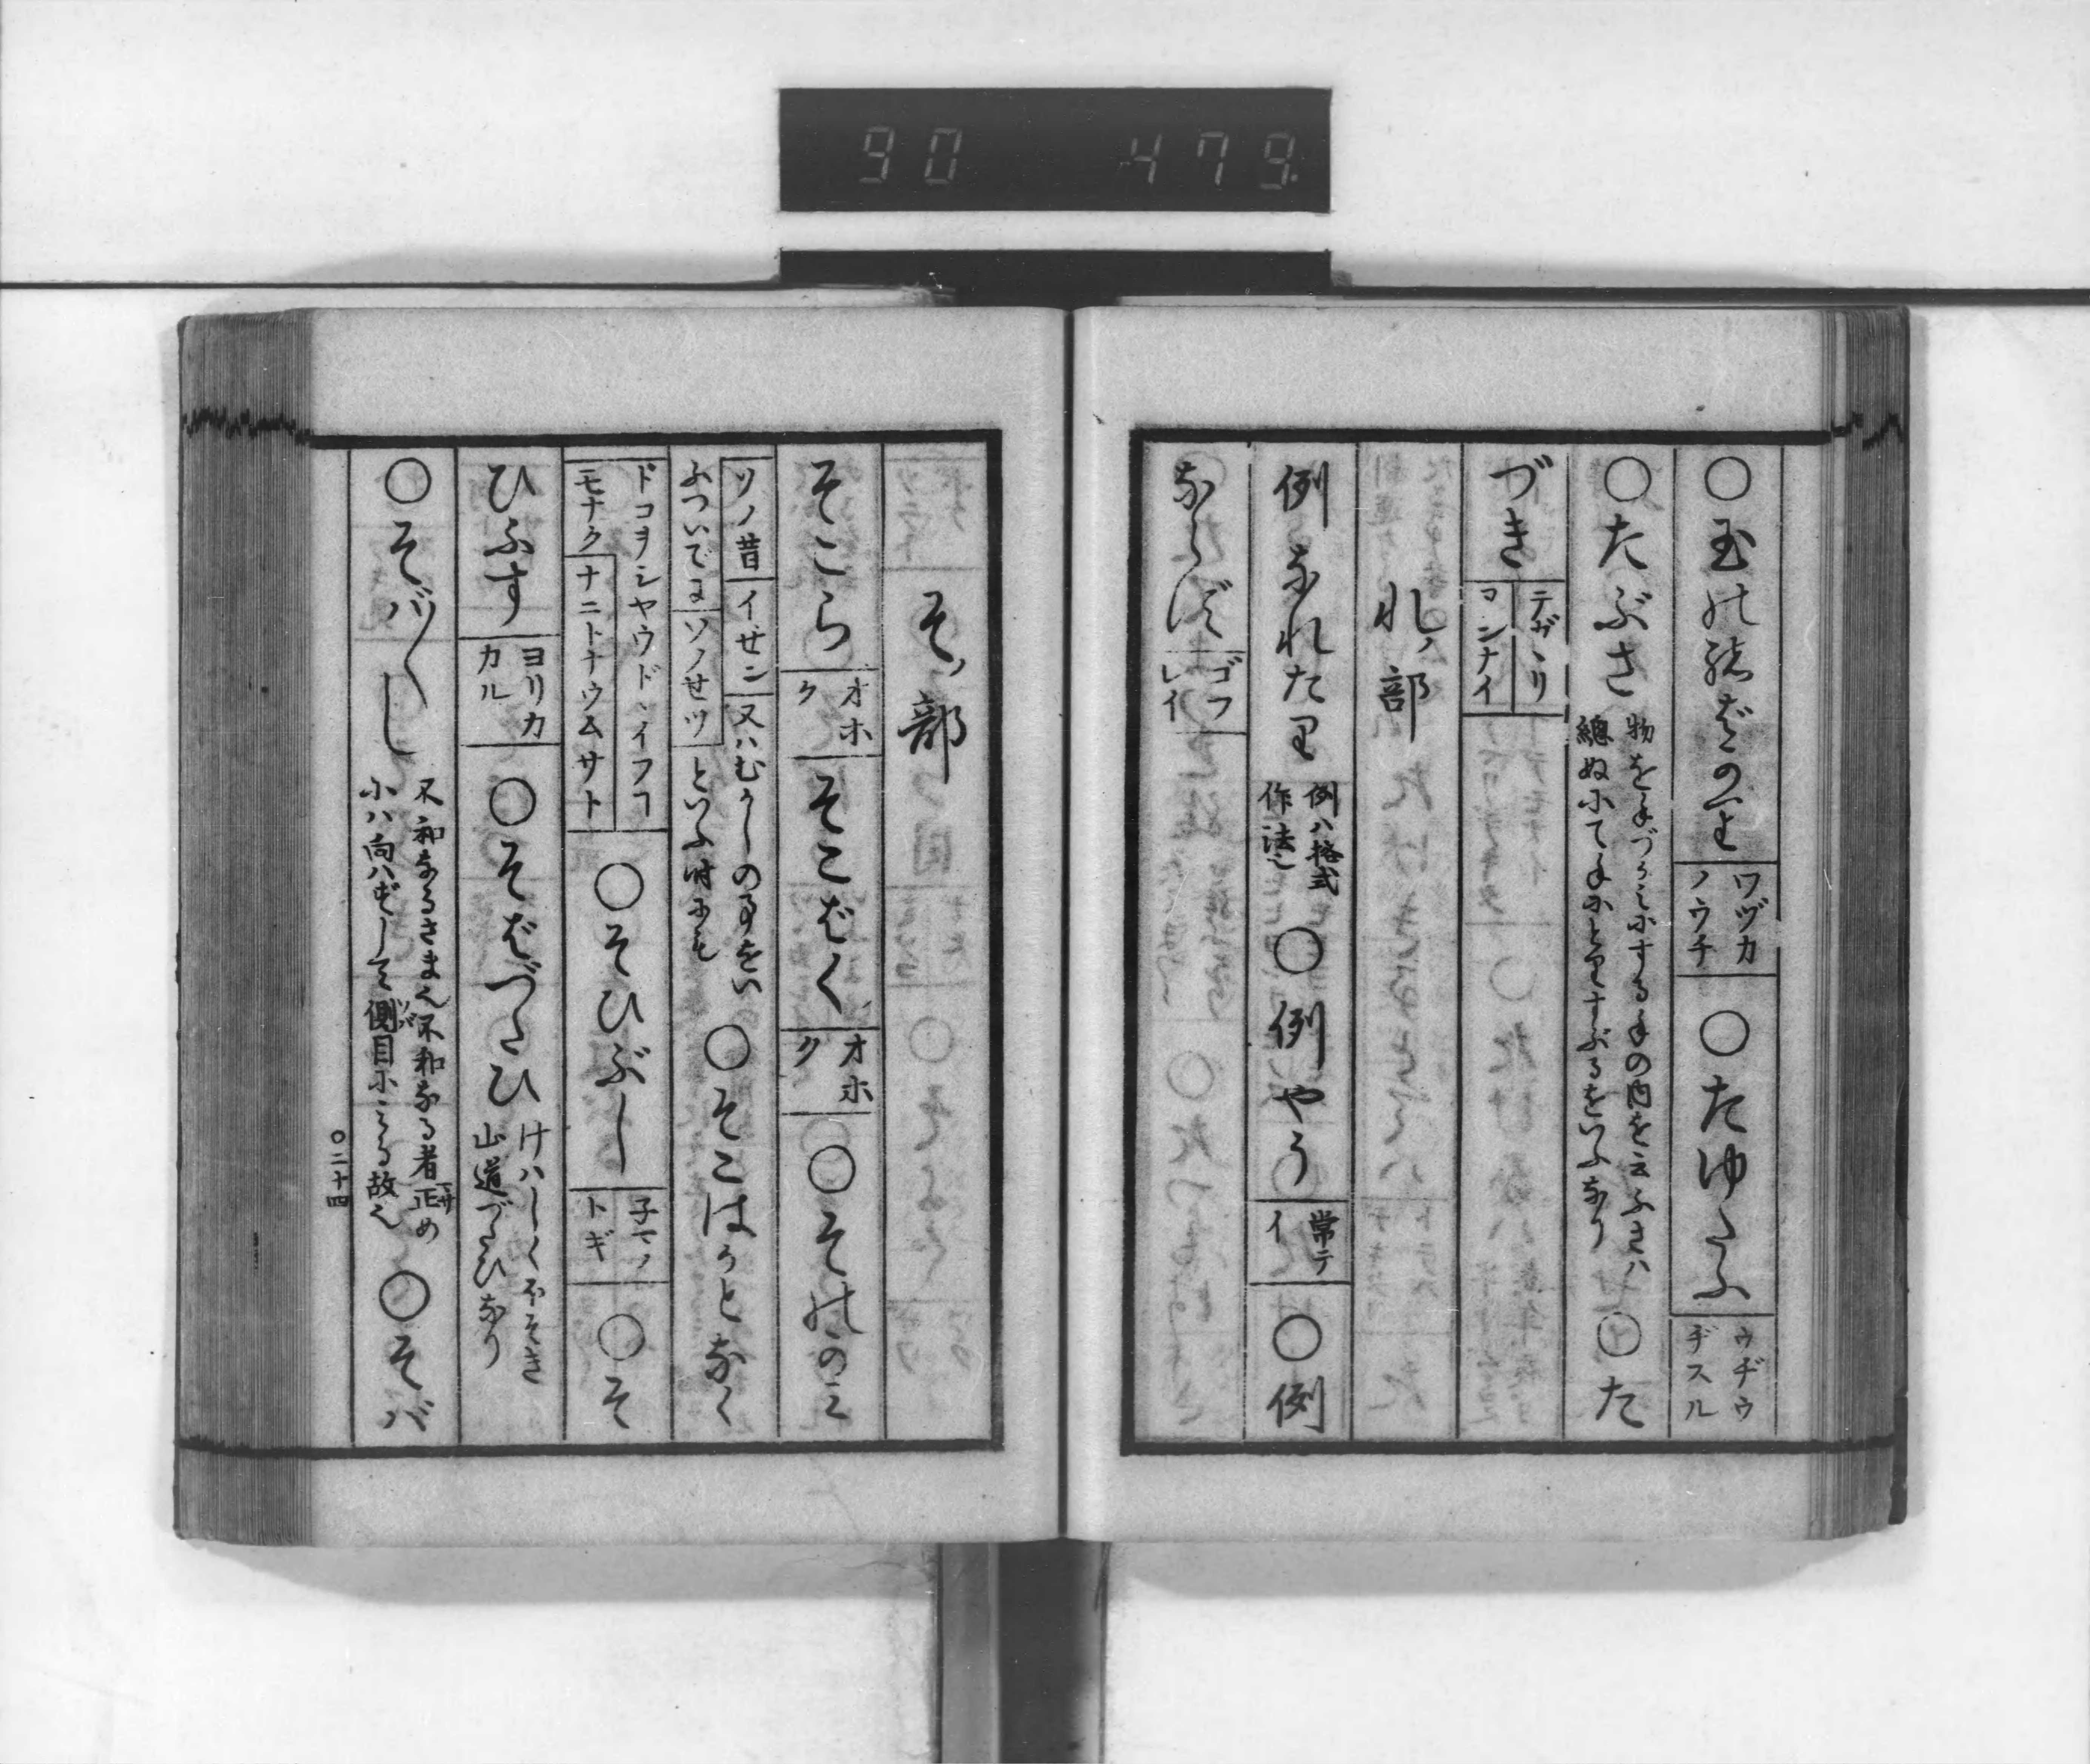 90 479
○玉の緒ばのま ワヅカノウチ ○たゆたふ ウヂウヂスル
○たぶさ 物を手づかみにする手の内を云ふさハ總ぬにて手にとりすぶるをいふなり ○た
づき テガヽリ コンナイ
れノ部
例なれたり 例ハ格式作法也 ○例やう 常テイ ○例
ならず ゴフレイ
そノ部
そこら オホク そこばく オホク ○そのかみ
ソノ昔 イゼン 又ハむかしの事をいふついでに ソノセツ といふ時にも ○そこはかとなく
ドコヲシヤウドヽイフコモナク ナニトナウムサト ○そひぶし 子マノトギ ○そ
ひふす ヨリカカル ○そばづたひ けハしくほそき山道づたひなり
○そバ〳〵し 不和なるさま也不和なる者正めにハ向ハずして側目にみる故也 ○そバ
○二十四